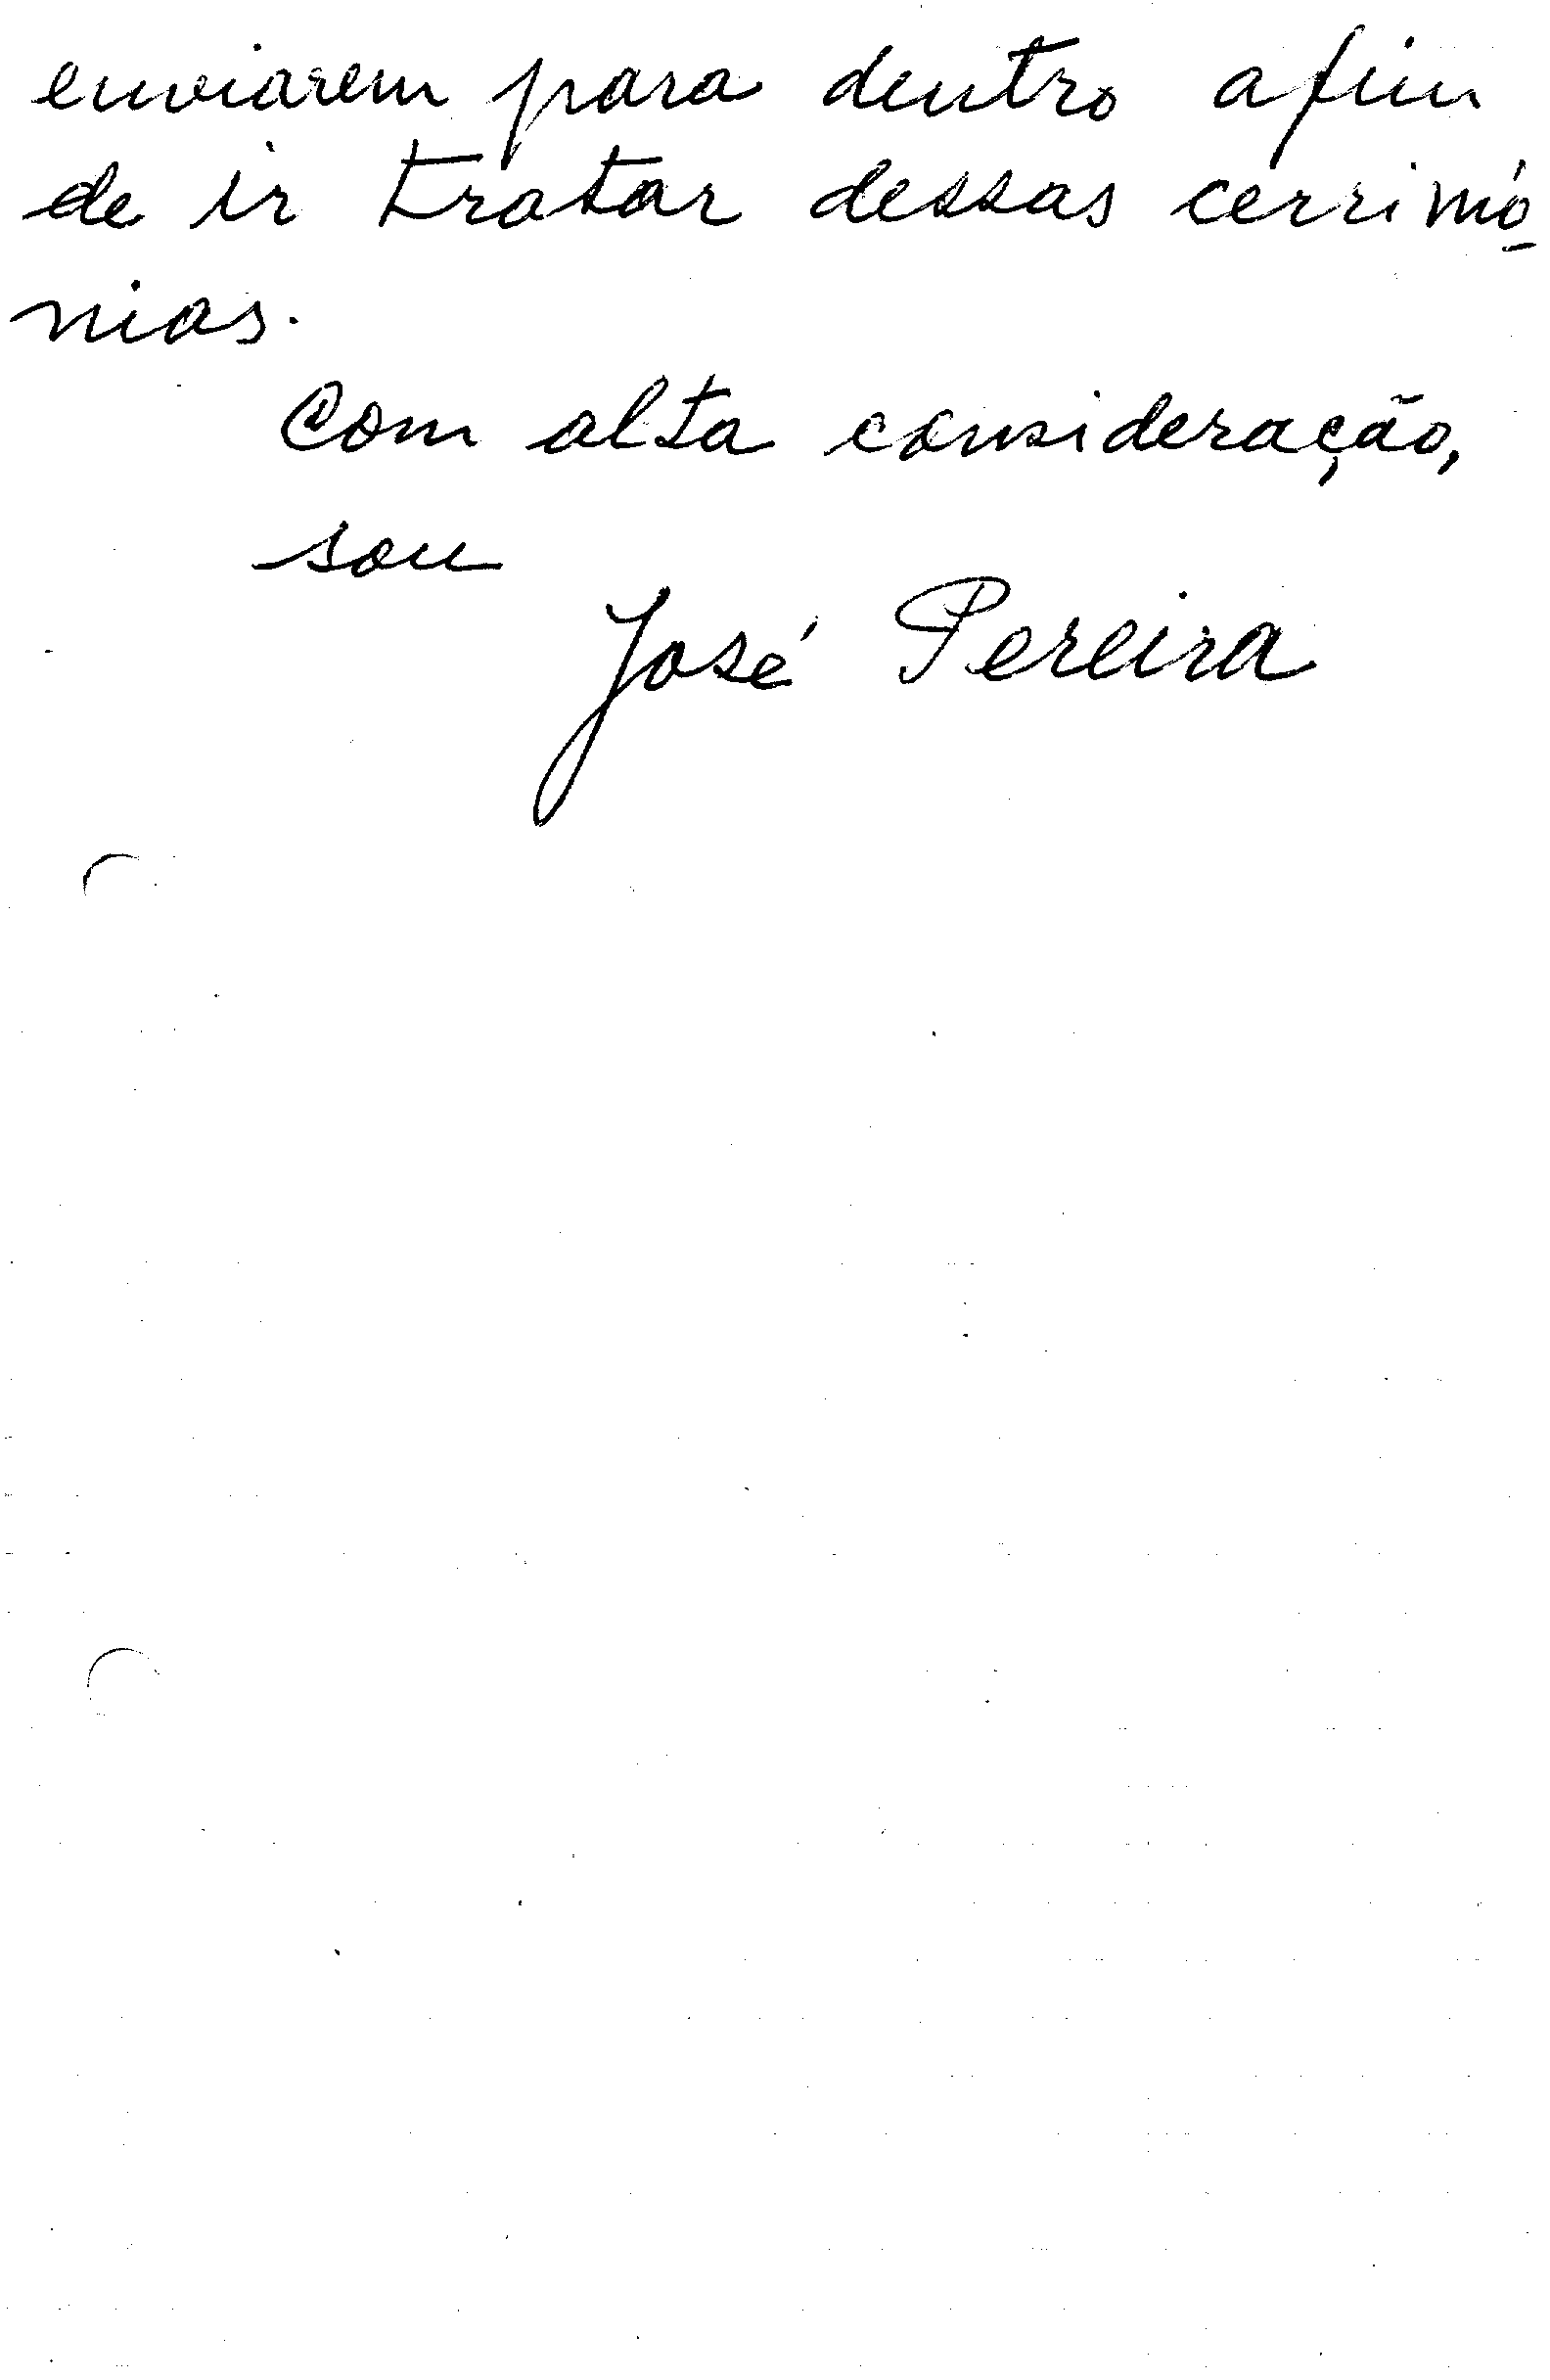 enviarem para dentro afim
de ir tratar dessas cerrimó-
nias.
Com alta consideração,
sou
José Pereira